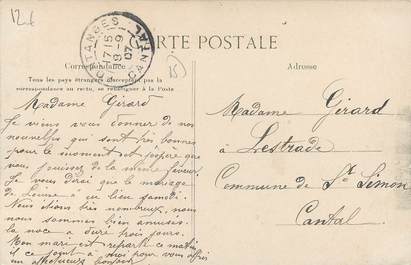 12-
CARTE POSTALE
Correspondance
Adresse
Tous les pays étrangers n'acceptent pas la
correspondance au recto, se renseigner à la Poste
CANTAL
15
Madame Girard
Je viens vous donner de nos
nouvelles qui sont très bonnes
pour le moment et j'espère que
vous jouissez de la même faveur.
Je vous dirai que le mariage
de Louise a eu lieu samedi.
Nous étions très nombreux, nous
nous sommes bien amusés.
la noce a duré trois jours.
Mon mari est reparti ce matin
il ce joint à moi pour vous offrir
un affectueux bonjour
Madame Girard
à Lestrade
Commune de St Simon
Cantal